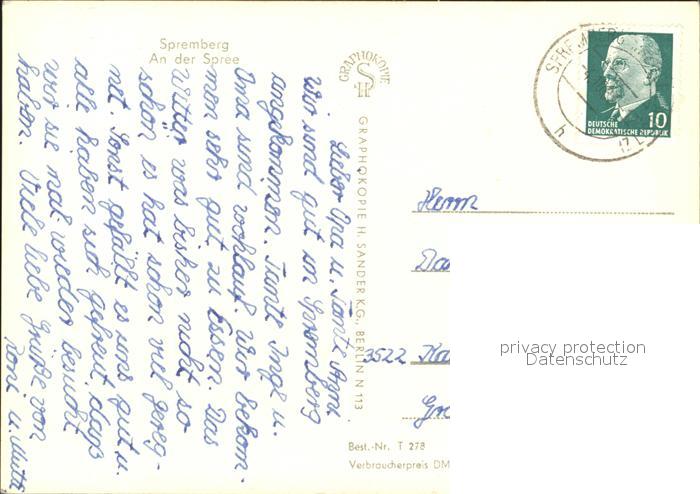 Spremberg
An der Spree
Lieber Opa u. Tante Agni
Wir sind gut in Spremberg
angekommen. Tante Inge u.
Oma sind wohlauf. Wir bekom-
men sehr gut zu Essen. Das
Wetter was bisher nicht so
schön es hat schon viel gereg-
net. Sonst gefällt es uns gut u.
alle haben sich gefreut, daß
wir sie mal wieder besucht
haben. Viele liebe Grüße von
Toni u. Mutti
GRAPHOKOPIE
H S
GRAPHOKOPIE H. SANDER K.G., BERLIN N 113
SPREMBERG
DEUTSCHE
DEMOKRATISCHE REPUBLIK
10
h
Herrn
3522
privacy protection
Datenschutz
Best.-Nr. T 278
Verbraucherpreis DM